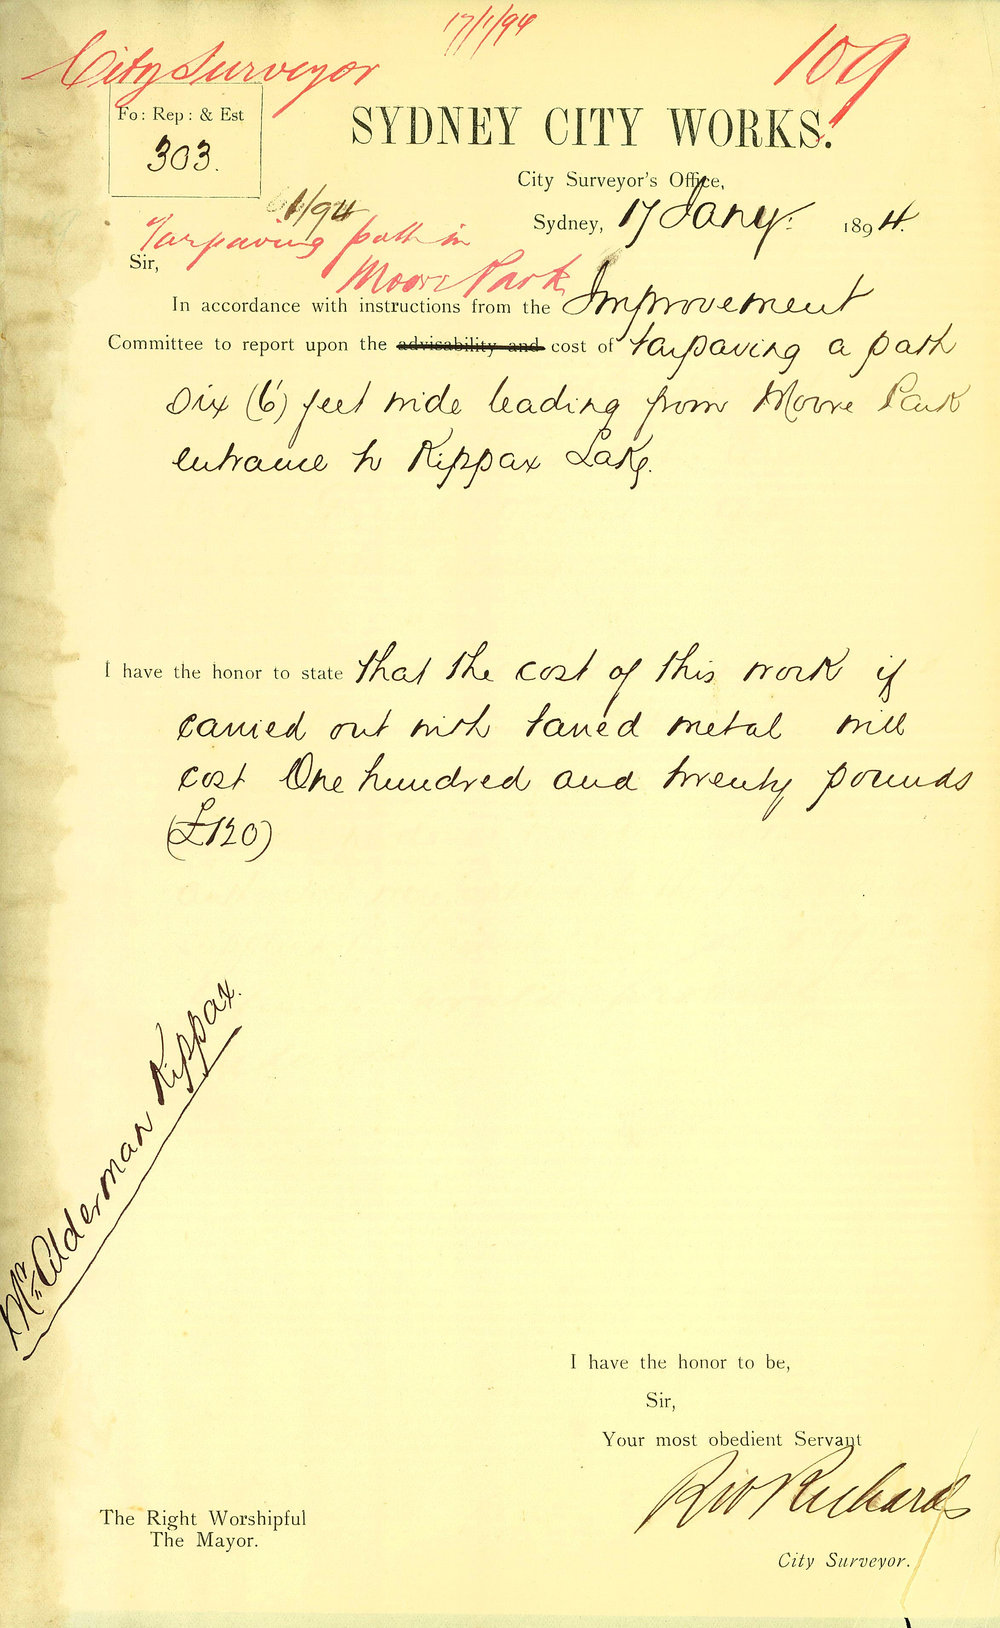 17/1/94
City Surveyor
109
Fo: Rep: & Est
303.
SYDNEY CITY WORKS.
City Surveyor's Office,
1/94
Sydney, 17 Jany: 1894.
Tarpaving path in
Moore Park
Sir,
In accordance with instructions from the Improvement
Committee to report upon the advisability and cost of tarpaving a path
six (6') feet wide leading from Moore Park
entrance to Kippax Lake.
I have the honor to state that the cost of this work if
carried out with tarred metal will
cost One hundred and twenty pounds
(£120)
Mr. Alderman Kippax.
I have the honor to be,
Sir,
Your most obedient Servant
RW Richards
City Surveyor.
The Right Worshipful
The Mayor.